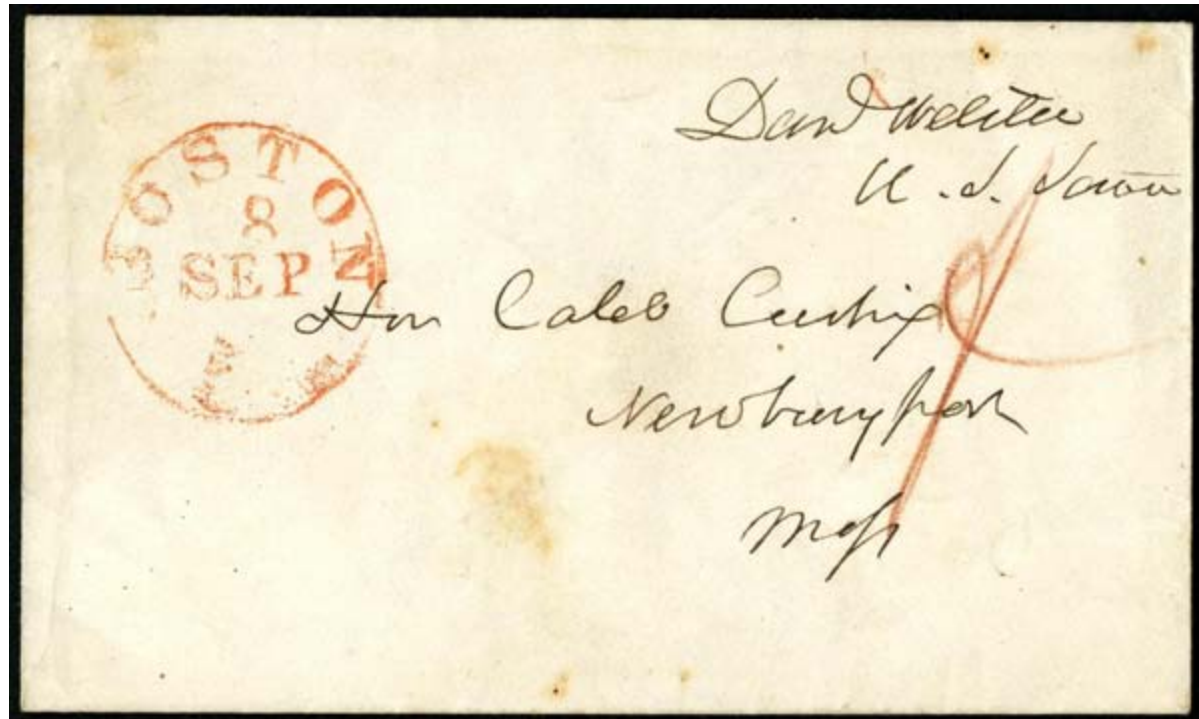 BOSTON
8
SEP
Danl Webster
U. S.
Hon Caleb Cushing
Newburyport
Mass